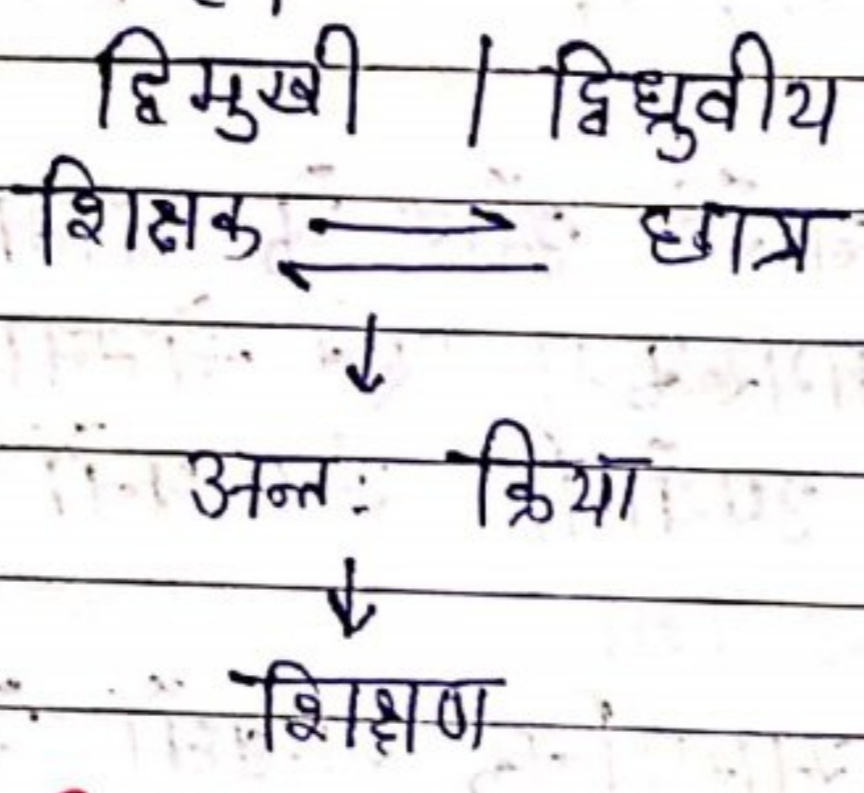 द्विमुखी | द्विध्रुवीय
शिक्षक ⇌ छात्र
↓
अन्तः क्रिया
↓
शिक्षण